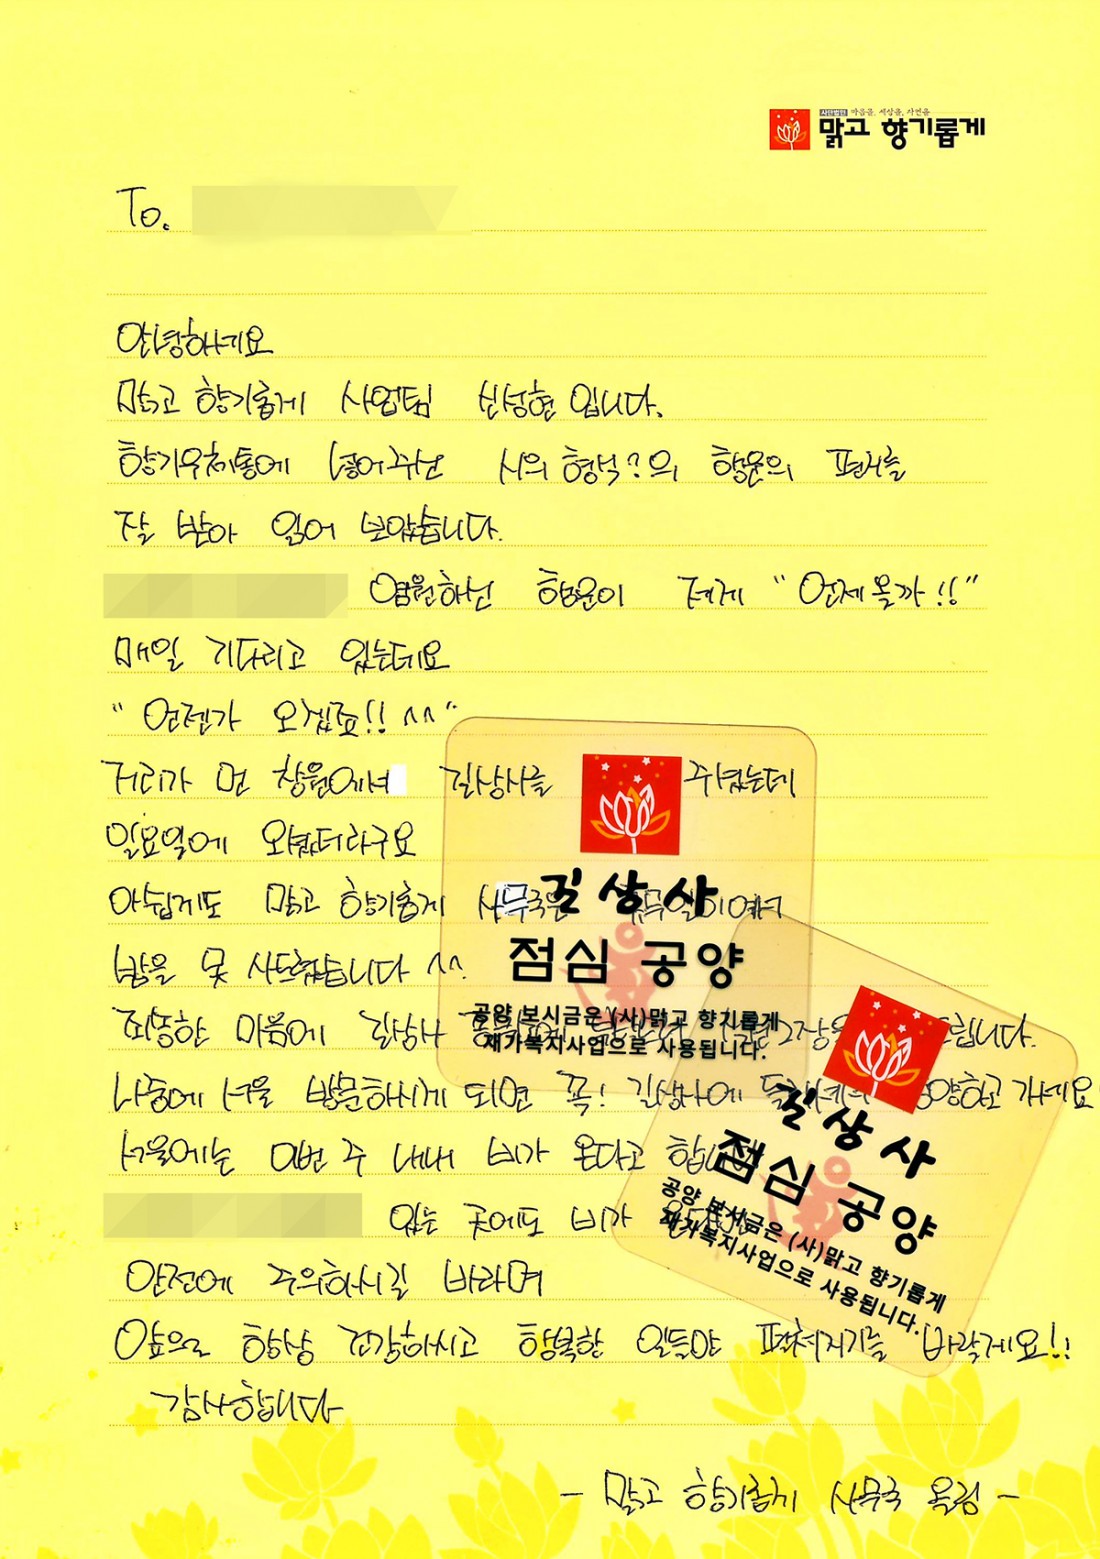 사단법인 마음을, 세상을, 자연을
맑고 향기롭게
To.
안녕하세요
맑고 향기롭게 사업팀 신성현 입니다.
향기우체통에 넣어주신 시의 형식?의 행운의 편지를
잘 받아 읽어 보았습니다.
염원하신 행운이 저게 “언제올까!!”
매일 기다리고 있는데요
“언젠가 오겠죠!! ^^”
거리가 먼 창원에서 길상사를 주셨는데
일요일에 오셨더라구요
아쉽게도 맑고 향기롭게 사무국은 휴무일이여서
밥을 못 사드렸습니다 ^^.
죄송한 마음에 길상사
나중에 서울 방문하시게 되면 꼭! 길상사에 공양하고 가세요
서울에는 이번 주 내내 비가 온다고
있는 곳에도 비가
안전에 주의하시길 바라며
앞으로 항상 건강하시고 행복한 일들만 펼쳐지기를 바랄게요!!
감사합니다
- 맑고 향기롭게 사무국 올림 -
길상사
점심 공양
공양 보시금은 (사)맑고 향기롭게
재가복지사업으로 사용됩니다.
길상사
점심 공양
공양 보시금은 (사)맑고 향기롭게
재가복지사업으로 사용됩니다.